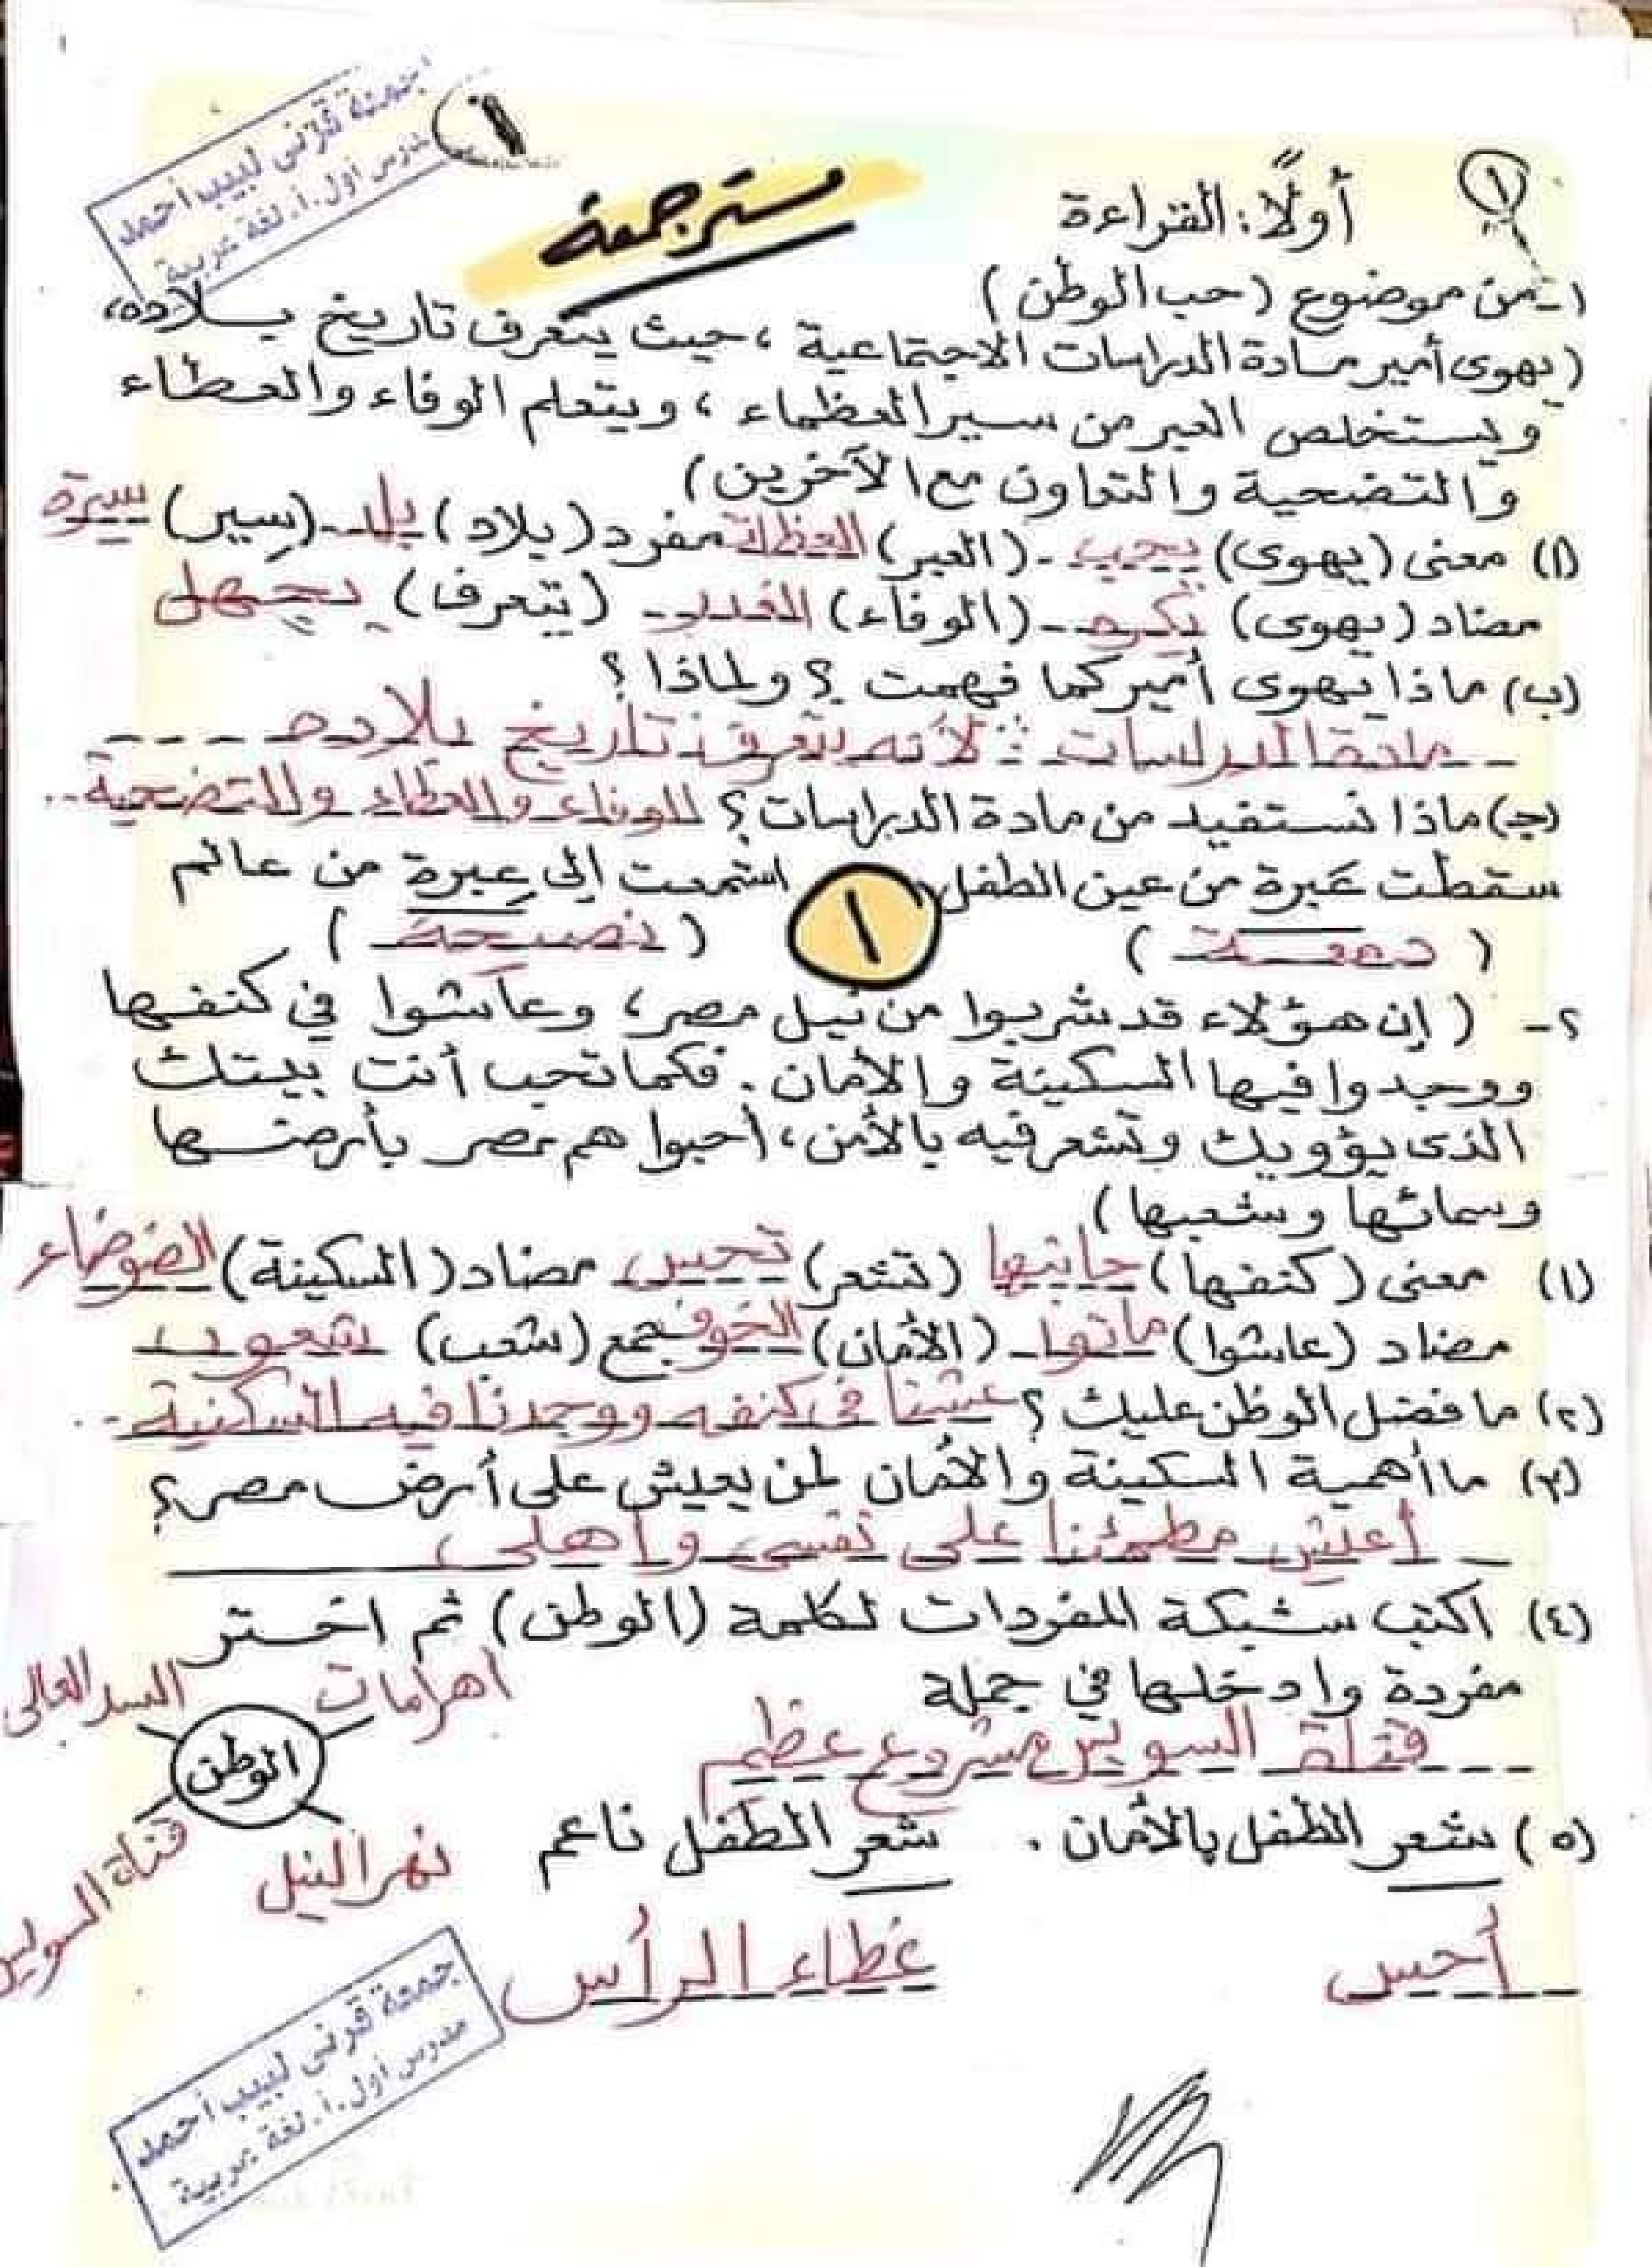 جمعة قرنى لبيب أحمد
مدرس أول.أ.لغة عربية
١
١
أولًا: القراءة
مترجمة
١- من موضوع (حب الوطن)
(يهوى أمير مادة الدراسات الاجتماعية، حيث يتعرف تاريخ بلاده،
ويستخلص العبر من سير العظماء، ويتعلم الوفاء والعطاء
والتضحية والتعاون مع الآخرين)
(أ) معنى (يهوى) يحب - (العبر) العظات مفرد (بلاد) بلد - (سِير) سيرة
مضاد (يهوى) يكره - (الوفاء) الغدر - (يتعرف) يجهل
(ب) ماذا يهوى أمير كما فهمت؟ ولماذا؟
مادة الدراسات: لأنه يتعرف تاريخ بلاده
(جـ) ماذا نستفيد من مادة الدراسات؟ الوفاء والعطاء والتضحية..
سقطت عَبرة من عين الطفل، استمعت إلى عِبرة من عالم
(دمعة) ١ (نصيحة)
٢- (إن هؤلاء قد شربوا من نيل مصر، وعاشوا في كنفها
ووجدوا فيها السكينة والأمان. فكما تحب أنت بيتك
الذى يؤويك وتشعر فيه بالأمن، أحبوا هم مصر بأرضها
وسمائها وشعبها)
(١) معنى (كنفها) جانبها (تشعر) تحس مضاد (السكينة) الضوضاء
مضاد (عاشوا) ماتوا - (الأمان) الخوف جمع (شعب) شعوب
(٢) ما فضل الوطن عليك؟ عشنا فى كنفه ووجدنا فيه السكنية..
(٣) ما أهمية السكينة والأمان لمن يعيش على أرض مصر؟
أعيش مطمئنا على نفسى وأهلى
(٤) اكتب شبكة المفردات لكلمة (الوطن) ثم اختر
مفردة وادخلها في جملة
اهرامات السد العالى
الوطن
قناة السويس مشروع عظيم
نهر النيل قناة السويس
(٥) شعر الطفل بالأمان. شعر الطفل ناعم
أحس غطاء الرأس
جمعة قرنى لبيب أحمد
مدرس أول.أ.لغة عربية